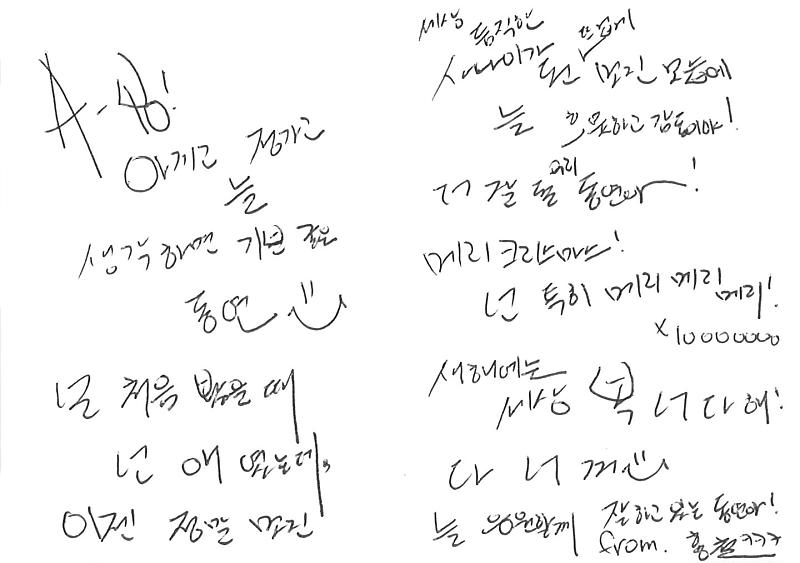 A-yo!
아끼고 정가고
늘
생각하면 기분 좋은
동연
널 처음 봤을 때
넌 애 였는데,
이젠 정말 멋진
세상 듬직한 뜨겁게
사나이가 된 멋진 모습에
늘 흐뭇하고 감동이야!
더 잘 될 거리 동연아!
메리 크리스마스!
넌 특히 메리 메리 메리!
x 10000000
새해에는
세상 복 너 다 해!
다 너 꺼
늘 응원할께 잘하고 있는 동연아!
from. 홍철ㅋㅋㅋ